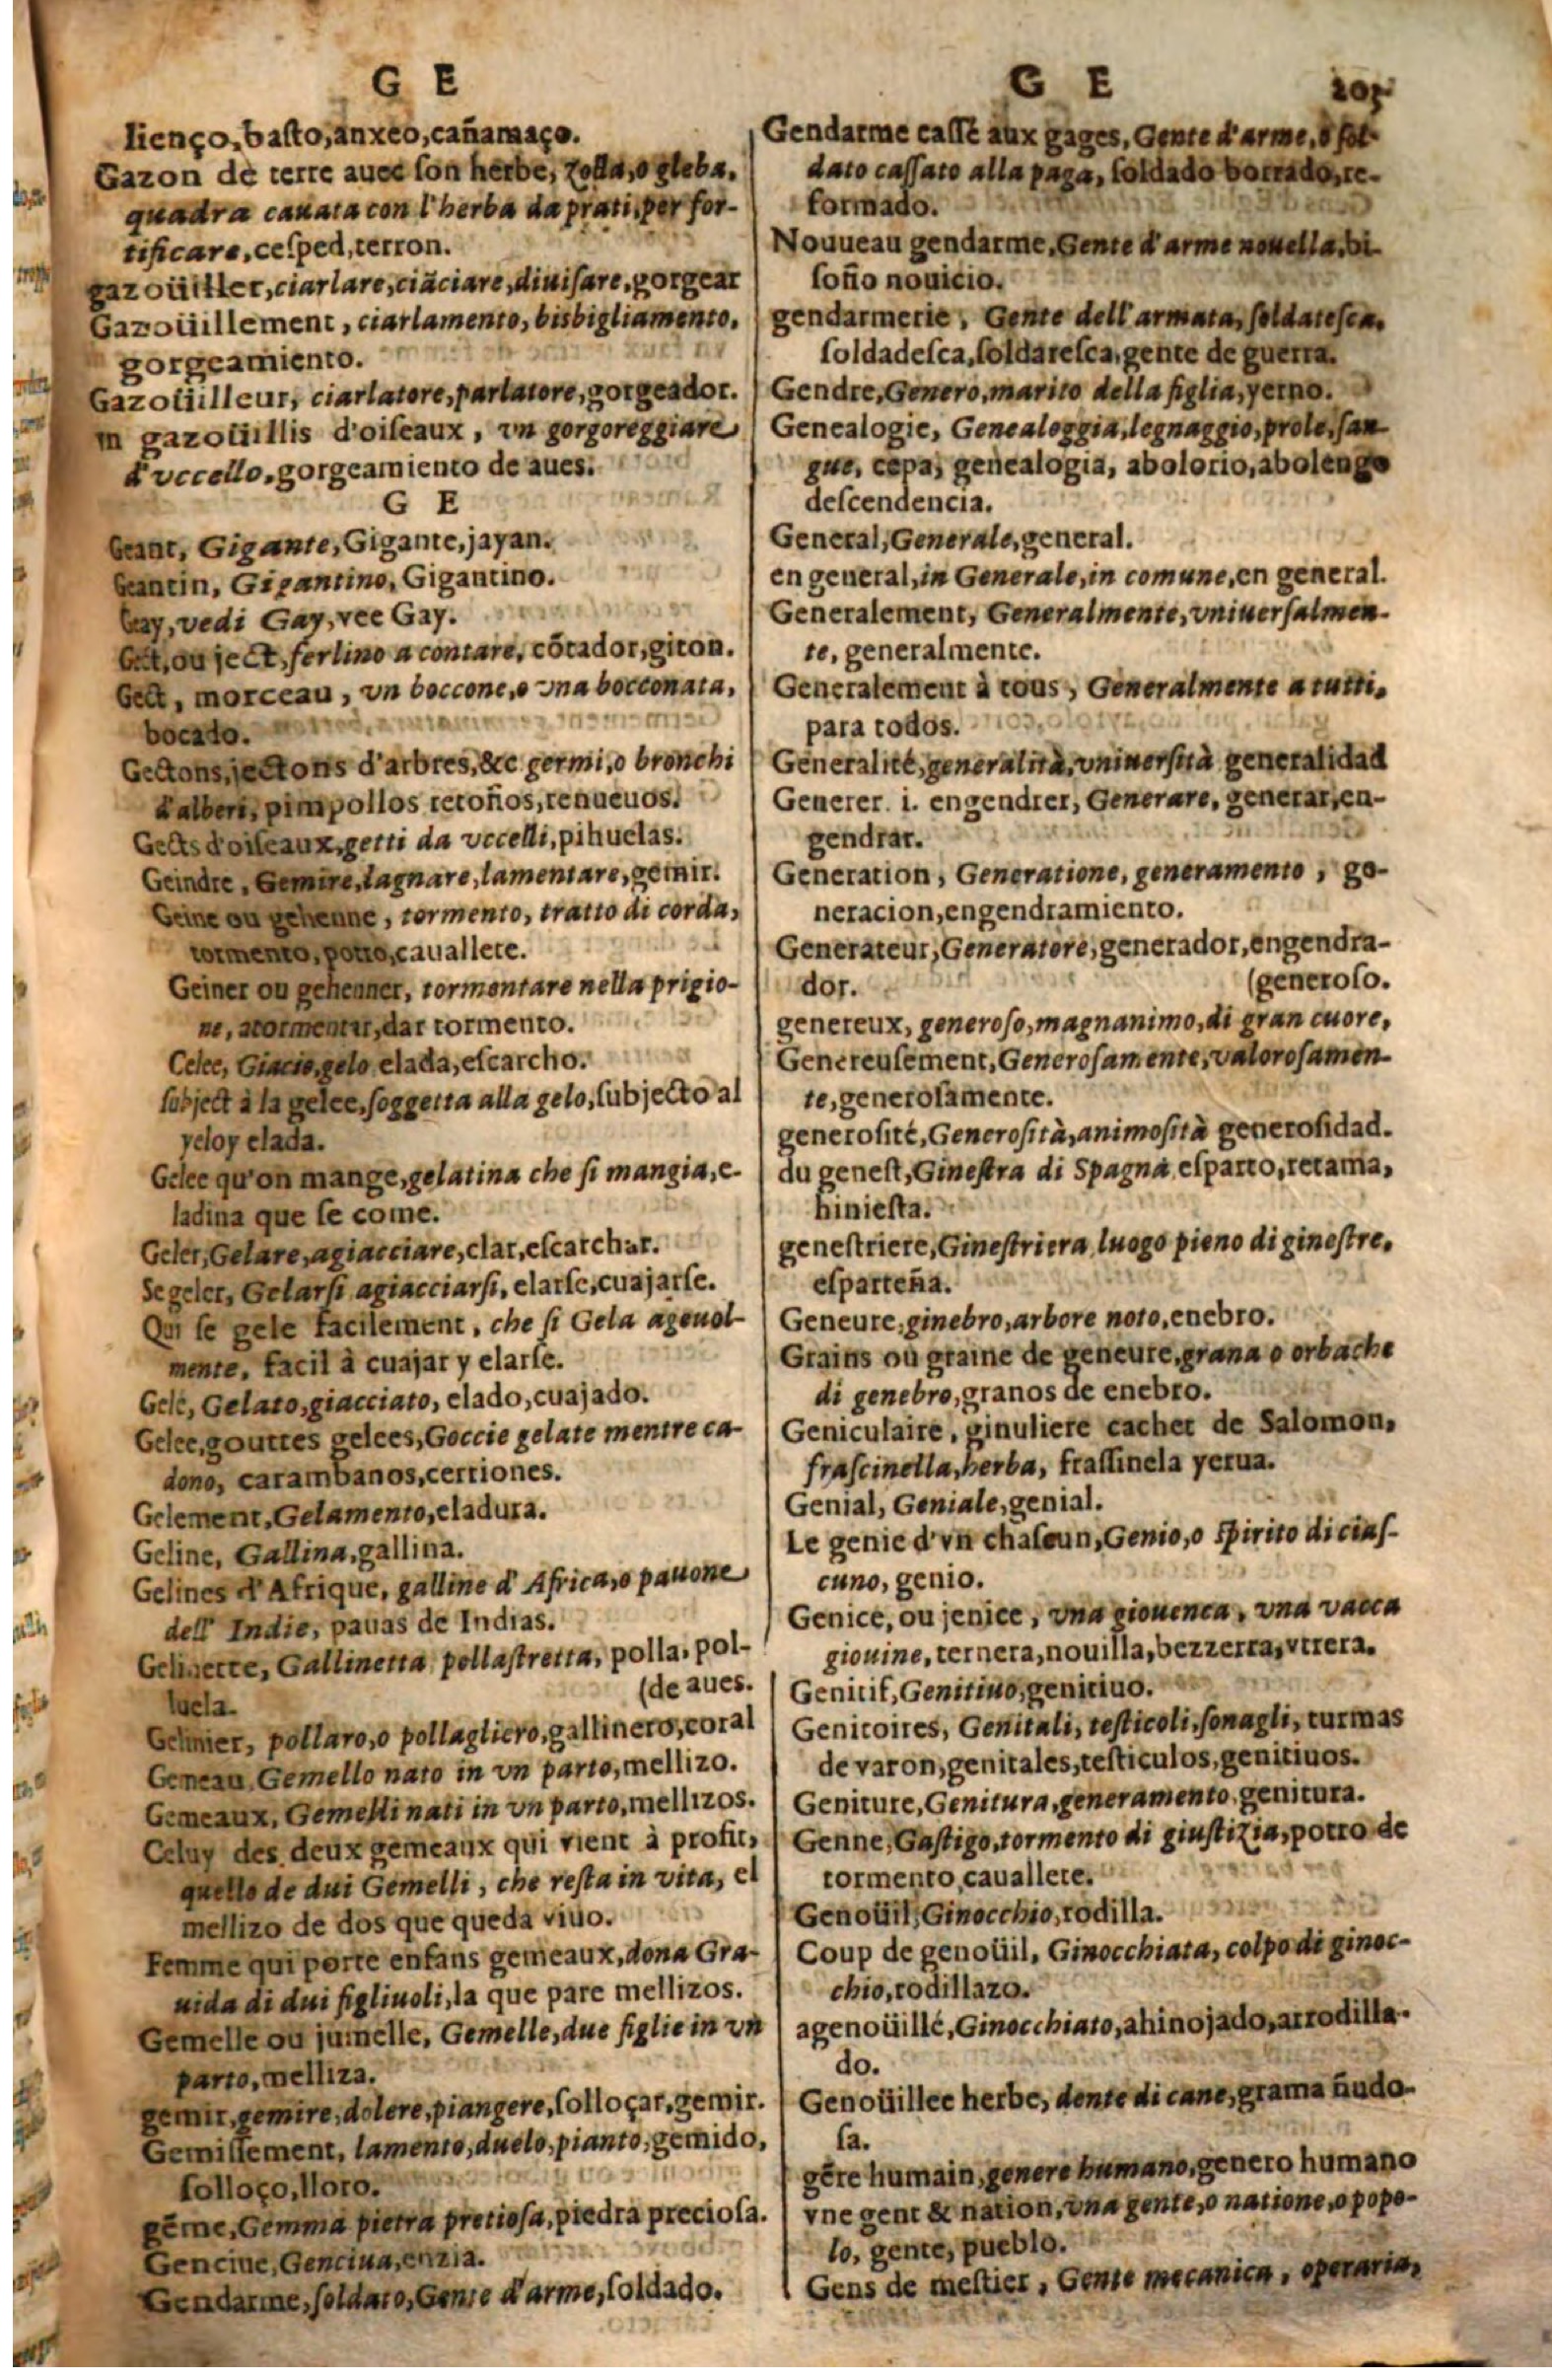 G E
lienço, basto, anxeo, cañamaço.
Gazon de terre auec son herbe, Zolla, o gleba,
quadra cauata con l'herba da prati, per for-
tificare, cesped, terron.
gazoüiller, ciarlare, ciãciare, diuisare, gorgear
Gazoüillement, ciarlamento, bisbigliamento,
gorgeamiento.
Gazoüilleur, ciarlatore, parlatore, gorgeador.
gazoüillis d'oiseaux, vn gorgoreggiare
d'vccello, gorgeamiento de aues.
G E
Geant, Gigante, Gigante, jayan.
Geantin, Gigantino, Gigantino.
Geay, vedi Gay, vee Gay.
Gect, ou ject, ferlino a contare, cõtador, giton.
Gect, morceau, vn boccone, o vna bocconata,
bocado.
Gectons, jectons d'arbres, &c germi, o bronchi
d'alberi, pimpollos retoños, renueuos.
Gects d'oiseaux, getti da vccelli, pihuelas.
Geindre, Gemire, lagnare, lamentare, gemir.
Geine ou gehenne, tormento, tratto di corda,
tormento, potro, cauallete.
Geiner ou gehenner, tormentare nella prigio-
ne, atormentar, dar tormento.
Celee, Giacio, gelo elada, escarcho.
subject à la gelee, soggetta alla gelo, subjecto al
yeloy elada.
Gelee qu'on mange, gelatina che si mangia, e-
ladina que se come.
Geler, Gelare, agiacciare, elar, escarchar.
Se geler, Gelarsi agiacciarsi, elarse, cuajarse.
Qui se gele facilement, che si Gela ageuol-
mente, facil à cuajar y elarse.
Gelé, Gelato, giacciato, elado, cuajado.
Gelee, gouttes gelees, Goccie gelate mentre ca-
dono, carambanos, cerriones.
Gelement, Gelamento, eladura.
Geline, Gallina, gallina.
Gelines d'Afrique, galline d'Africa, o pauone
dell' Indie, pauas de Indias.
Gelinette, Gallinetta pollastretta, polla, pol-
luela. (de aues.
Gelinier, pollaro, o pollagliero, gallinero, coral
Gemeau Gemello nato in vn parto, mellizo.
Gemeaux, Gemelli nati in vn parto, mellizos.
Celuy des deux gemeaux qui vient à profit,
quello de dui Gemelli, che resta in vita, el
mellizo de dos que queda viuo.
Femme qui porte enfans gemeaux, dona Gra-
uida di dui figliuoli, la que pare mellizos.
Gemelle ou jumelle, Gemelle, due figlie in vn
parto, melliza.
gemir, gemire, dolere, piangere, solloçar, gemir.
Gemissement, lamento, duelo, pianto, gemido,
solloço, lloro.
gẽme, Gemma pietra pretiosa, piedra preciosa.
Genciue, Genciua, enzia.
Gendarme, soldato, Gente d'arme, soldado.
G E 205
Gendarme cassé aux gages, Gente d'arme, o sol-
dato cassato alla paga, soldado borrado, re-
formado.
Nouueau gendarme, Gente d'arme nouella, bi-
soño nouicio.
gendarmerie, Gente dell' armata, soldatesca,
soldadesca, soldaresca, gente de guerra.
Gendre, Genero, marito della figlia, yerno.
Genealogie, Genealoggia, legnaggio, prole, san-
gue, cepa, genealogia, abolorio, abolengo
descendencia.
General, Generale, general.
en general, in Generale, in comune, en general.
Generalement, Generalmente, vniuersalmen-
te, generalmente.
Generalement à tous, Generalmente a tutti,
para todos.
Generalité, generalità, vniuersità generalidad
Generer i. engendrer, Generare, generar, en-
gendrar.
Generation, Generatione, generamento, ge-
neracion, engendramiento.
Generateur, Generatore, generador, engendra-
dor. (generoso.
genereux, generoso, magnanimo, di gran cuore,
Genereusement, Generosamente, valorosamen-
te, generosamente.
generosité, Generosità, animosità generosidad.
du genest, Ginestra di Spagna esparto, retama,
hiniesta.
genestriere, Ginestriera luogo pieno di ginestre,
esparteña.
Geneure, ginebro, arbore noto, enebro.
Grains ou graine de geneure, grana o orbache
di genebro, granos de enebro.
Geniculaire, ginuliere cachet de Salomon,
frascinella, herba, frassinela yerua.
Genial, Geniale, genial.
Le genie d'vn chascun, Genio, o spirito di cias-
cuno, genio.
Genice, ou jenice, vna giouenca, vna vacca
giouine, ternera, nouilla, bezzerra, vtrera.
Genitif, Genitiuo, genitiuo.
Genitoires, Genitali, testicoli, sonagli, turmas
de varon, genitales, testiculos, genitiuos.
Geniture, Genitura, generamento, genitura.
Genne, Gastigo, tormento di giustizia, potro de
tormento, cauallete.
Genoüil, Ginocchio, rodilla.
Coup de genoüil, Ginocchiata, colpo di ginoc-
chio, rodillazo.
agenoüillé, Ginocchiato, ahinojado, arrodilla-
do.
Genoüillee herbe, dente di cane, grama ñudo-
sa.
gẽre humain, genere humano, genero humano
vne gent & nation, vna gente, o natione, o popo-
lo, gente, pueblo.
Gens de mestier, Gente mecanica, operaria,